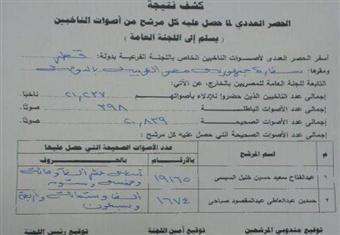 كشف نتيجة
الحصر العددي لما حصل عليه كل مرشح من أصوات الناخبين
يسلم إلى اللجنة العامة)
أسفر الحصر العددى لأصوات الناخبين الخاص باللجنة الفرعية بدولة: قطر
ومقرها: سفارة جمهورية مصر العربية بالدوحة
التابعة للجنة العامة للمصريين بالخارج، عن الآتى:
إجمالى عدد الناخبين الذين حضروا للإدلاء بأصواتهم ٢١,٢٣٧ ناخباً.
إجمالى عدد الأصوات الباطلة ٣٩٨ صوتاً.
إجمالى عدد الأصوات الصحيحة ٢٠,٨٣٩ صوتاً.
إجمالى عدد الأصوات الصحيحة التى حصل عليه كل مرشح:
م اسم المرشح عدد الأصوات الصحيحة التى حصل عليها
بالأرقام بالحروف
١ عبدالفتاح سعيد حسين خليل السيسى ١٩١٦٥
٢ حمدين عبدالعاطى عبدالمقصود صباحى ١٦٧٤
توقيع مندوبى المرشحين توقيع أمين اللجنة توقيع رئيس اللجنة